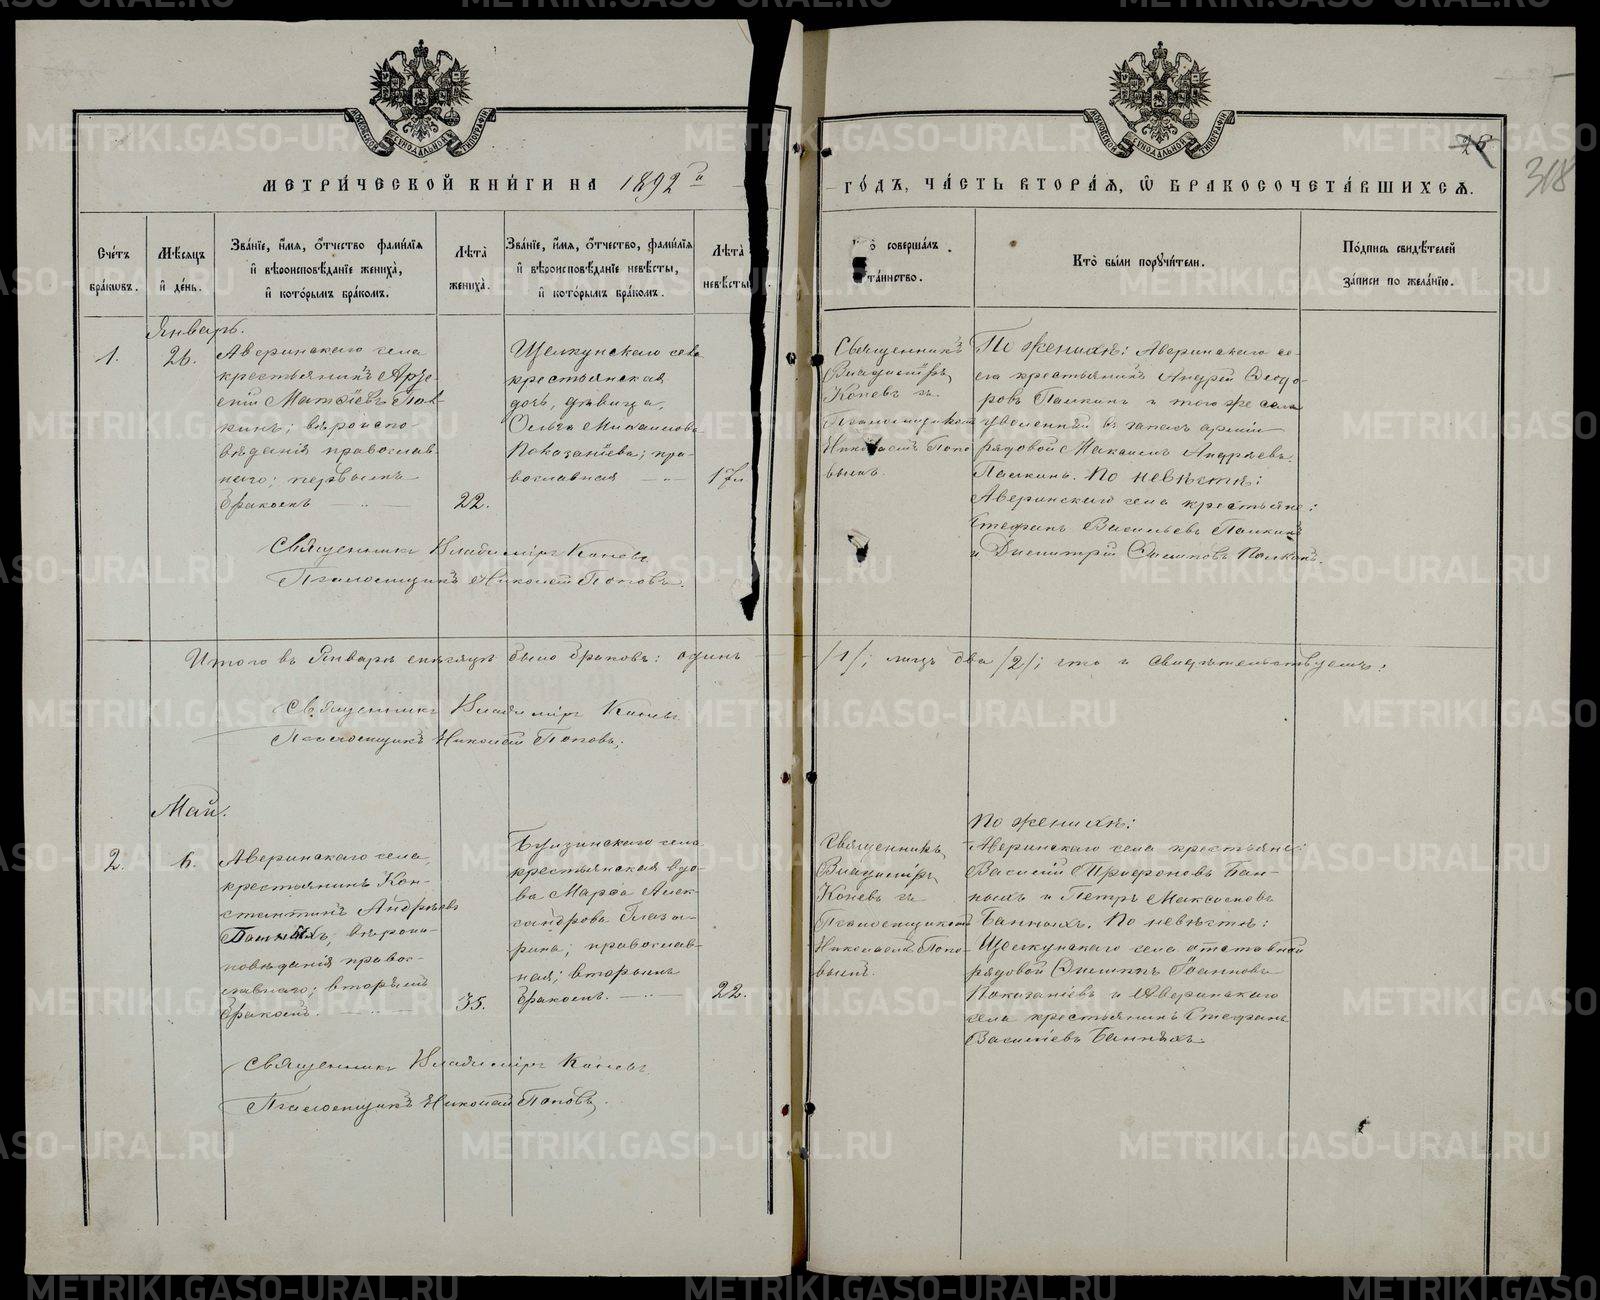 МЕТРИ́ЧЕСКОЙ КНИ́ГИ НА 1892й
ГО́ДЪ, ЧА́СТЬ ВТОРА́Я, Ѽ БРАКОСОЧЕТА́ВШИХСЯ.
28
318
Сче́тъ бра́ковъ.
Мѣ́сяцъ и҆ де́нь.
Зва́нїе, и҆́мя, ѻ҆́тчество фами́лїя и҆ вѣроисповѣ́данїе жениха̀, и҆ кото́рымъ бра́комъ.
Лѣ́та̀ жениха̀.
Зва́нїе, и҆́мя, ѻ҆́тчество, фами́лїя и҆ вѣроисповѣ́данїе невѣ́сты, и҆ кото́рымъ бра́комъ.
Лѣ́та̀ невѣ́сты
соверша́лъ та́инство.
Кто̀ бы́ли поручи́тели.
По́дпись свидѣ́телей за́писи по жела́нїю.
Январь.
1.
26.
Аверинскаго села
крестьянинъ Арсе-
ній Матѳіевъ Пал-
кинъ; вѣроиспо-
вѣданія православ-
наго; первымъ
бракомъ
22.
Щелкунскаго села
крестьянская
дочь, дѣвица,
Ольга Михаилова
Показаніева; пра-
вославная
17л
Священникъ
Владиміръ
Коневъ съ
Псаломщикомъ
Николаемъ Попо-
вымъ.
По женихѣ: Аверинскаго се-
ла крестьянинъ Андрей Ѳеодо-
ровъ Палкинъ и того же села
уволенный въ запасъ арміи
рядовой Максимъ Андреевъ
Палкинъ. По невѣстѣ:
Аверинскаго села крестьяне:
Стефанъ Васильевъ Палкинъ
и Димитрій Палкинъ.
Священникъ Владиміръ Коневъ
Псаломщикъ Николай Поповъ.
Итого въ Январѣ мѣсяцѣ было браковъ: одинъ /1/; лицъ два /2/; что и свидѣтельствуемъ:
Священникъ Владиміръ Коневъ
Псаломщикъ Николай Поповъ.
Май.
2.
6.
Аверинскаго села,
крестьянинъ Кон-
стантинъ Андреевъ
Банныхъ; вѣроис-
повѣданія право-
славнаго; вторымъ
бракомъ.
35.
Булзинскаго села
крестьянская вдо-
ва Марѳа Алек-
сандрова Глаза-
рина; православ-
ная; вторымъ
бракомъ.
22.
Священникъ
Владиміръ
Коневъ съ
Псаломщикомъ
Николаемъ Попо-
вымъ.
По женихѣ:
Аверинскаго села крестьяне:
Василій Трифоновъ Бан-
ныхъ и Петръ Максимовъ
Банныхъ. По невѣстѣ:
Щелкунскаго села отставной
рядовой Іоанновъ
Показаніевъ и Аверинскаго
села крестьянинъ Стефанъ
Василіевъ Банныхъ.
Священникъ Владиміръ Коневъ
Псаломщикъ Николай Поповъ.
METRIKI.GASO-URAL.RU